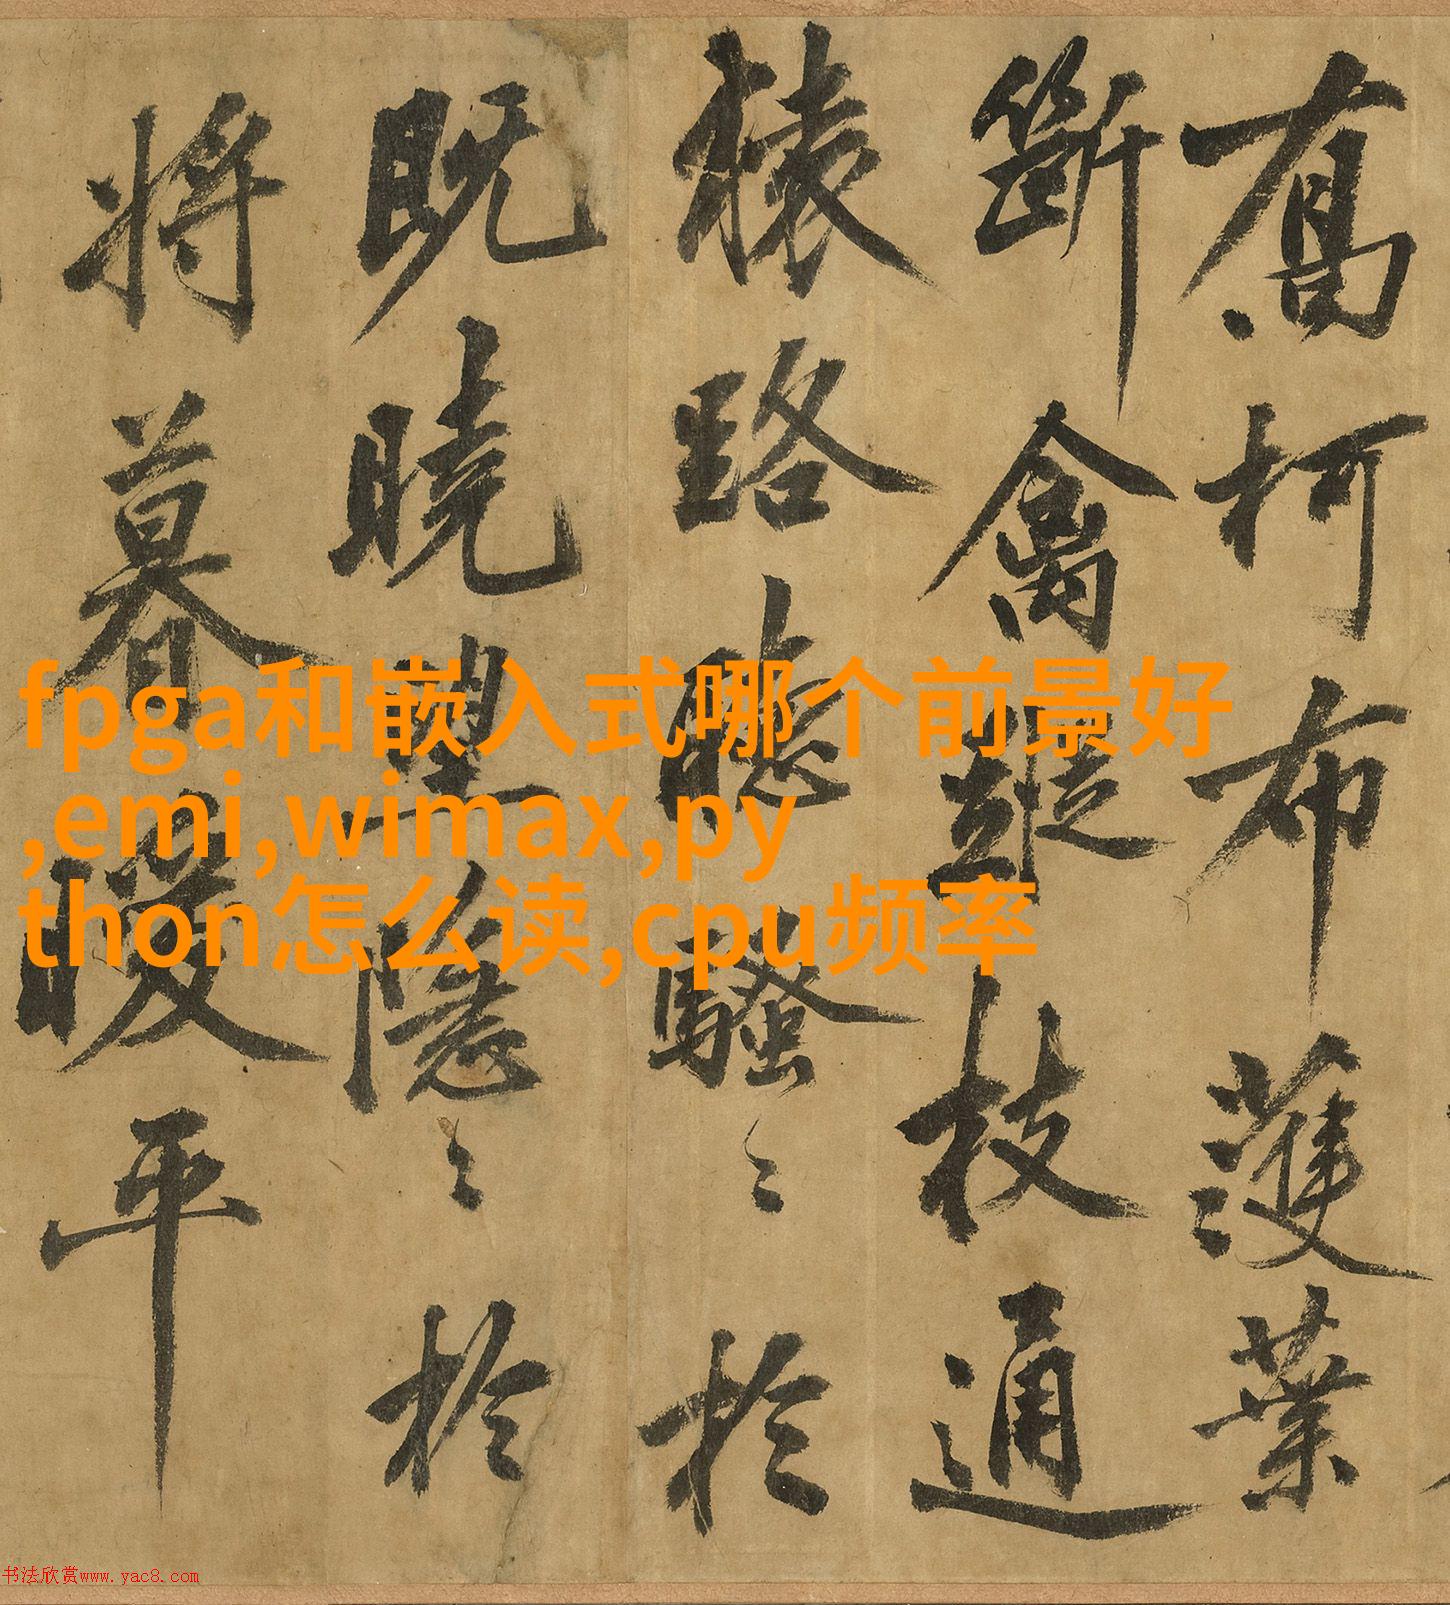 喬柯布濩葉
斷禽蹤枝通
猿路聽騷〻於
既曉望隱〻於
將暮曖平
fpga和嵌入式哪个前景好
,emi,wimax,py
thon怎么读,cpu频率
书法欣赏www.yac8.com